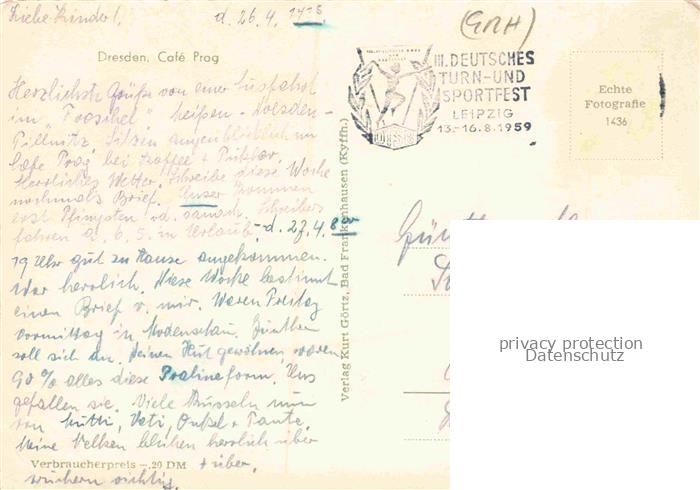 Liebe Kinder!
d. 26.4.
(GRH)
Dresden, Café Prag
III. DEUTSCHES
TURN-UND
SPORTFEST
LEIPZIG
13.-16.8.1959
Echte
Fotografie
1436
Herzlichste Grüße von einer Lustfahrt
im Meißen - Dresden -
Pillnitz. Sitzen augenblicklich im
Café Prag bei Kaffee +
Herrliches Wetter. Schreibe diese Woche
nochmals Brief. Unser Kommen
erst Pfingsten od. danach. Schreibers
fahren a. 6.5. in Urlaub. - d. 27.4. 8 00
19 Uhr gut zu Hause angekommen.
War herrlich. Diese Woche bestimmt
einen Brief v. mir. Waren Freitag
vormittag in Modenschau. Günther
soll sich an Deinen Hut gewöhnen, waren
90 % alles diese Pralineform. Uns
gefallen sie. Viele Busseln nun
von Mutti, Vati, Onkel + Tante.
Meine Nelken blühen herrlich über
+ über,
wuchern richtig.
Verbraucherpreis -,20 DM
Verlag Kurt Görtz, Bad Frankenhausen (Kyffh.)
privacy protection
Datenschutz